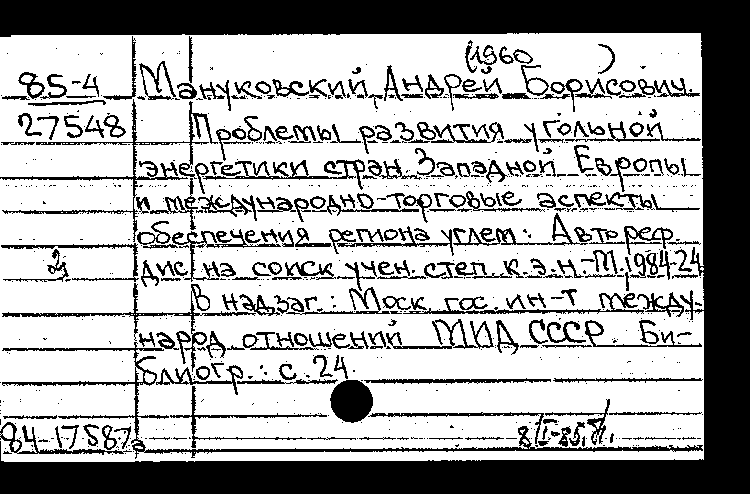 (1960 )
85-4 Мануковский, Андрей Борисович.
27548 Проблемы развития угольной
энергетики стран Западной Европы
и международно-торговые аспекты
обеспечения региона углем: Автореф.
дис. на соиск. учен. степ. к.э.н.-М., 1984-24
В надзаг.: Моск. гос. ин-т между-
народ. отношений МИД СССР. Би-
блиогр.: с. 24.
84-17587а